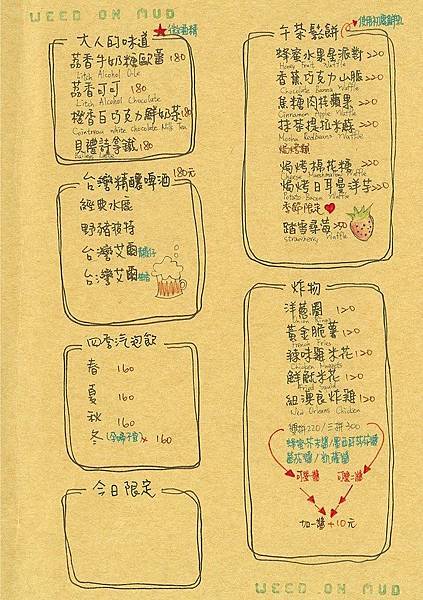 WEED ON MUD
大人的味道
★微酒精
荔香牛奶糖歐蕾 180
Litch Alcohol Ole
荔香可可 180
Litch Alcohol Chocolate
橙香白巧克力鮮奶茶180
Cointreau white chocolate Milk Tea
貝禮詩拿鐵180
Baileys Latte
台灣精釀啤酒 180元
經典水
野豬波特
台灣艾爾
台灣艾爾
四季汽泡飲
春 160
夏 160
秋 160
冬 160
今日限定
午茶鬆餅
蜂蜜水果星派對 220
Honey Fruit Waffle
香蕉巧克力山脈 220
Chocolate Banana Waffle
焦糖肉桂蘋果 220
Cinnamon Apple Waffle
抹茶提拉米蘇 220
Mocha RedBeans Waffle
焗烤類
焗烤棉花糖 220
Cheese Marshmallow Waffle
焗烤日耳曼洋芋 220
Potato Bacon Waffle
季節限定
踏雪尋莓 250
Strawberry Waffle
炸物
洋蔥圈 120
Onion Rings
黃金脆薯 120
French Fries
辣味雞米花 120
Chicken Nuggets
鮮魷米花 120
Fried Squid
紐澳良炸雞 120
New Orleans Chicken
雙拼220/三拼300
蜂蜜芥末醬/墨西哥莎莎醬
蕃茄醬/
可選一醬 可選二醬
加一醬+10元
WEED ON MUD